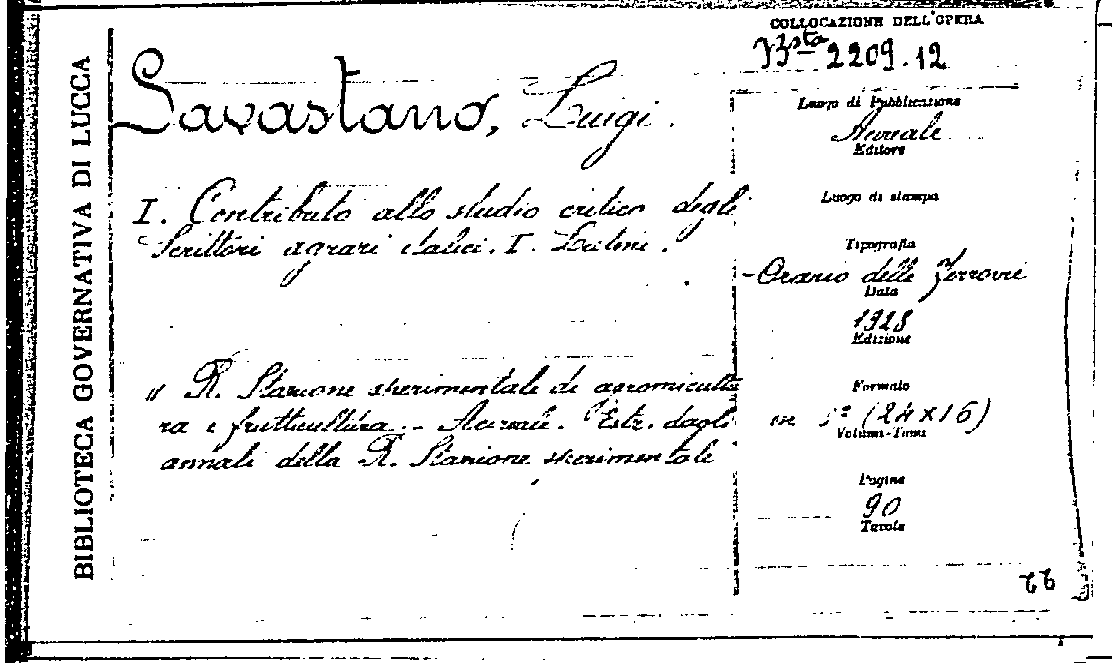 BIBLIOTECA GOVERNATIVA DI LUCCA
COLLOCAZIONE DELL'OPERA
Bsta 2209.12
Savastano, Luigi.
I. Contributo allo studio critico degli
Scrittori agrari italici. I. Latini.
" R. Stazione sperimentale di agrumicultu
ra e frutticultura. - Acireale. Estr. dagli
annali della R. Stazione sperimentale
Luogo di Pubblicazione
Acireale
Editore
Luogo di stampa
Tipografia
Orario delle Ferrovie
Data
1928
Edizione
Formato
in 8º (24x16)
Volumi-Tomi
Pagine
90
Tavole